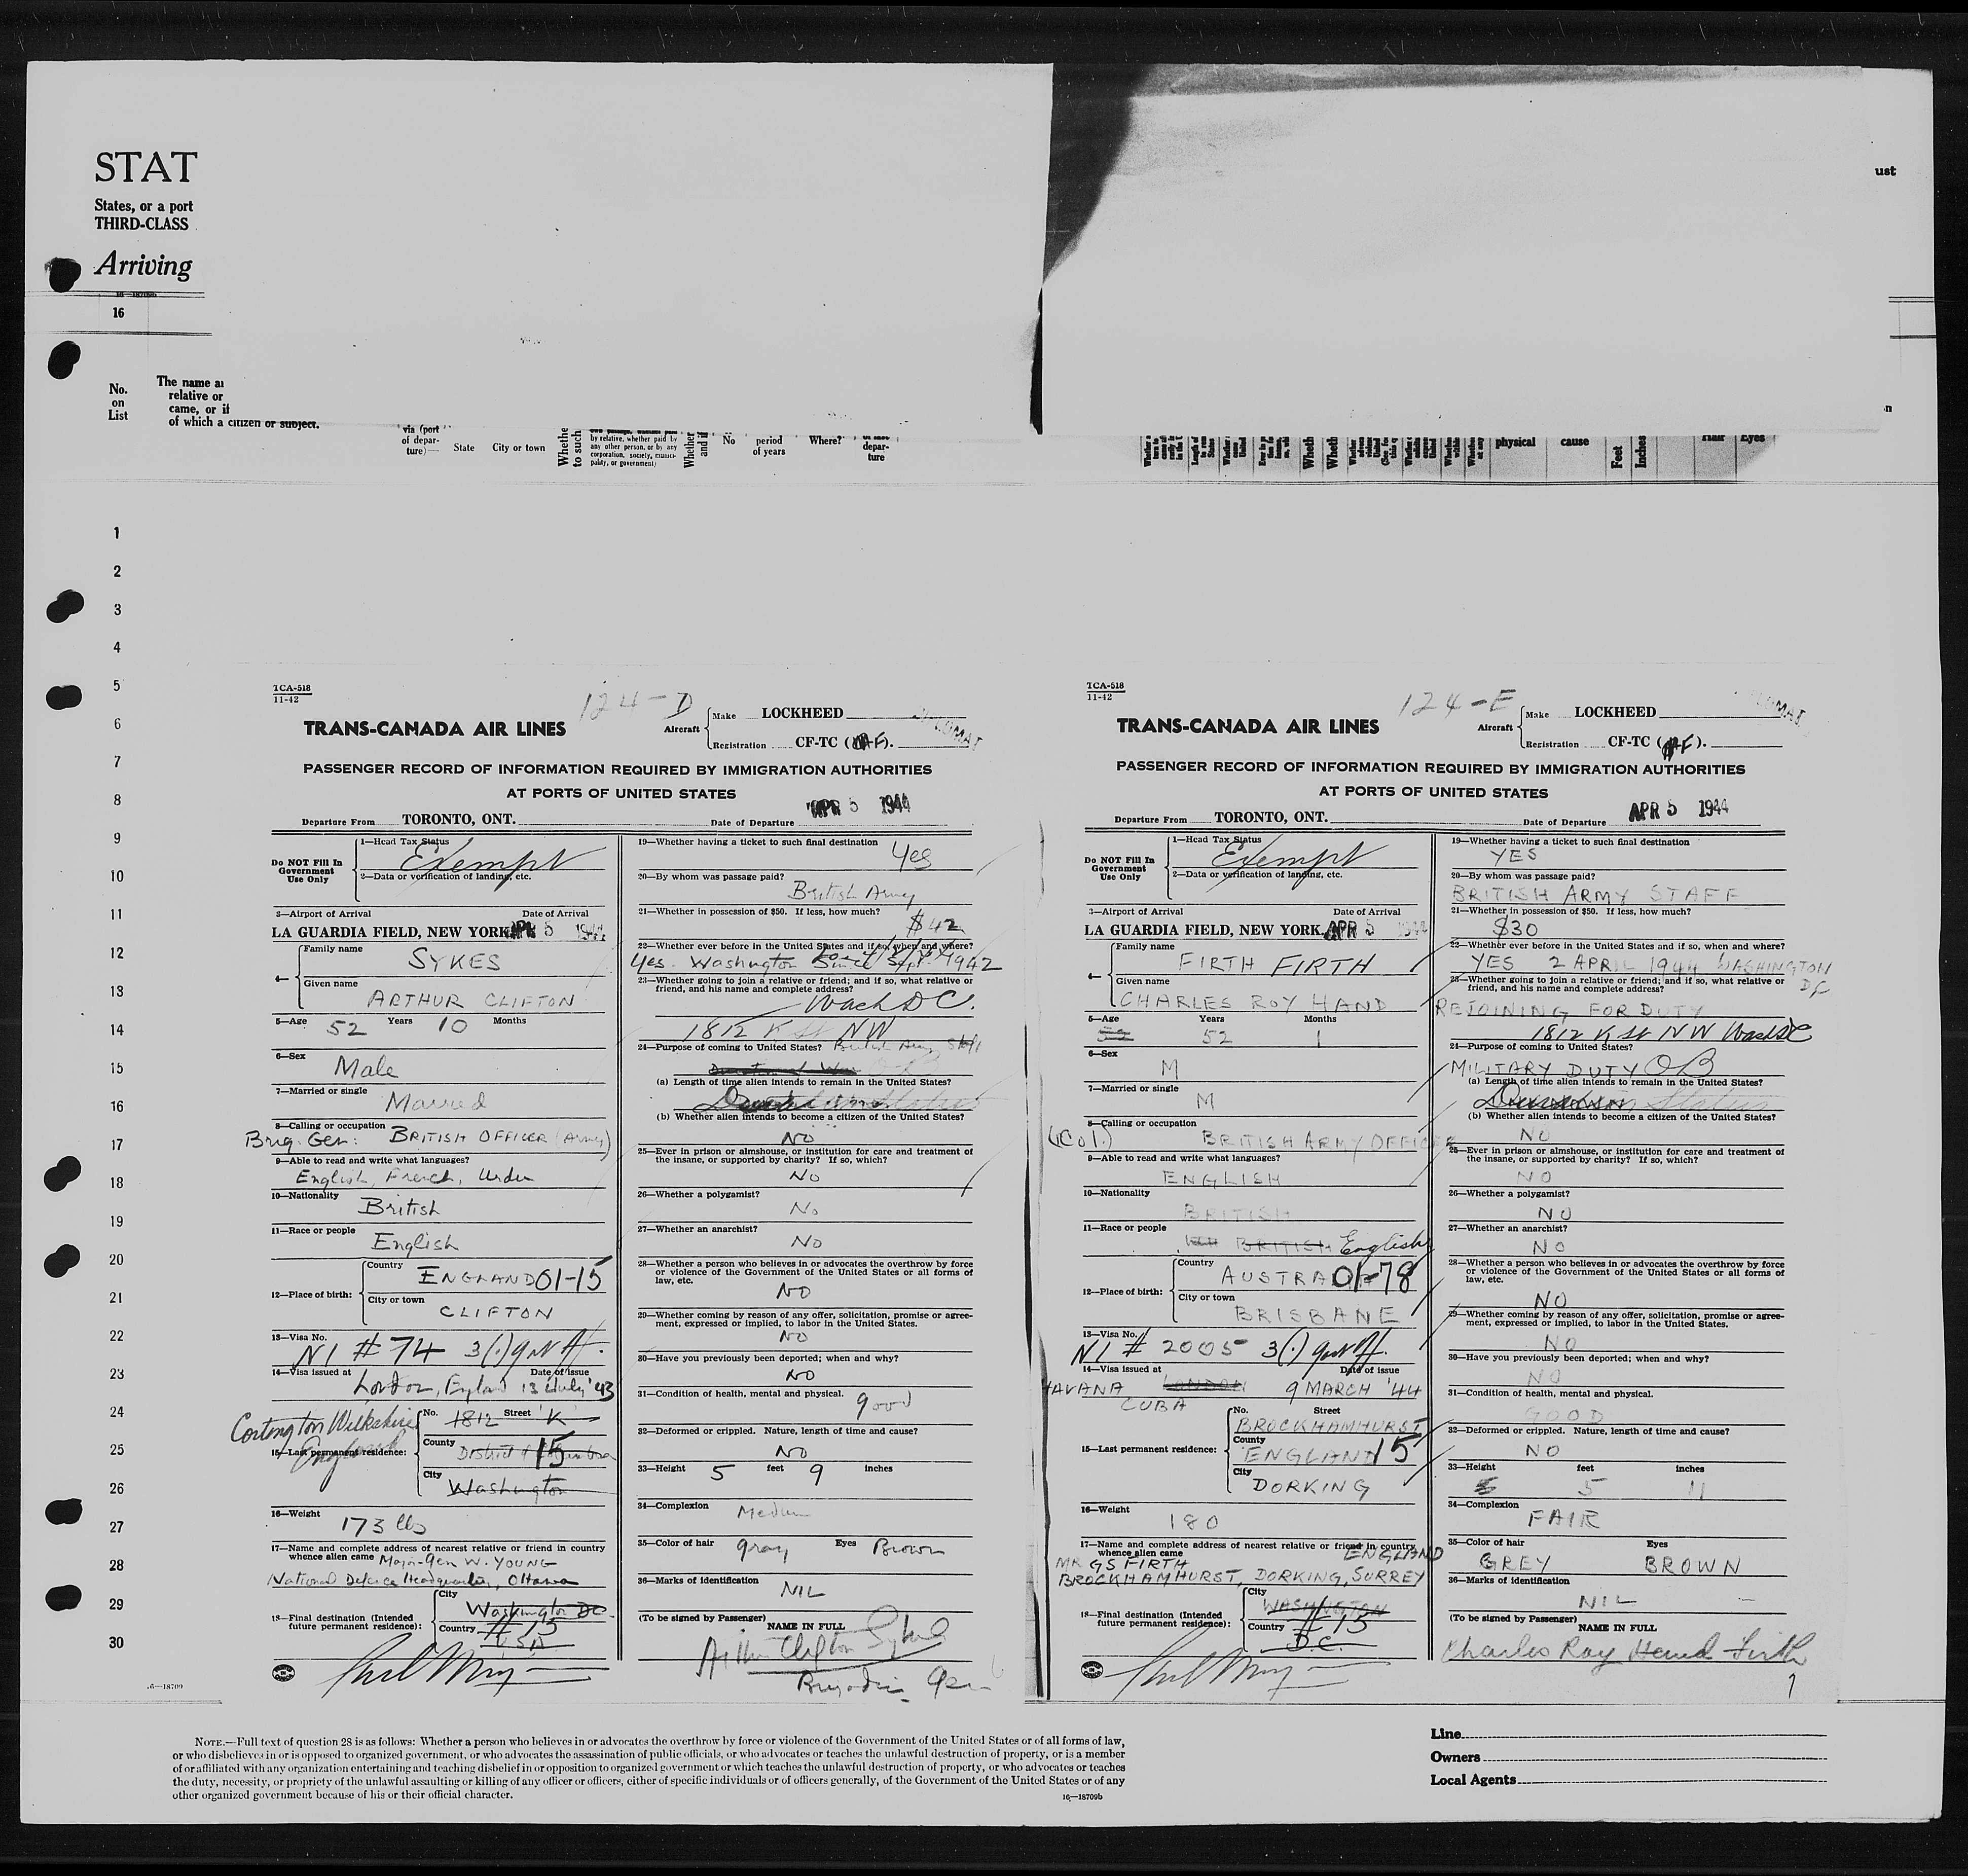 STAT
States, or a port
THIRD-CLASS
Arriving
16
No.
on
List
The name a
relative or
came, or if
of which a citizen or subject.
via (port
of depar-
ture)—
State
City or town
Whethe
to such
by relative, whether paid by
any other person, or by any
corporation, society, munici-
pality, or government)
Whether
and if
No
period
of years
Where?
depar-
ture
ust
physical
cause
Feet
Inches
Hair
Eyes
1
2
3
4
5
6
7
8
9
10
11
12
13
14
15
16
17
18
19
20
21
22
23
24
25
26
27
28
29
30
TCA-518
11-42
124-D
TRANS-CANADA AIR LINES
Aircraft
Make LOCKHEED
Registration CF-TC (AF).
PASSENGER RECORD OF INFORMATION REQUIRED BY IMMIGRATION AUTHORITIES
AT PORTS OF UNITED STATES
APR 5 1944
Departure From TORONTO, ONT. Date of Departure
Do NOT Fill In
Government
Use Only
1—Head Tax Status
Exempt
2—Data or verification of landing, etc.
3—Airport of Arrival Date of Arrival
LA GUARDIA FIELD, NEW YORK APR 5 1944
4—
Family name
SYKES
Given name
ARTHUR CLIFTON
5—Age 52 Years 10 Months
6—Sex
Male
7—Married or single
Married
8—Calling or occupation
Brig. Gen: BRITISH OFFICER (Army)
9—Able to read and write what languages?
English, French, Urdu
10—Nationality
British
11—Race or people
English
12—Place of birth:
Country
ENGLAND 01-15
City or town
CLIFTON
13—Visa No.
NI # 74 3(1) gov't
14—Visa issued at Date of issue
London, England 13 July '43
15—Last permanent residence:
Wilkshire
England
No. 1812 Street 'K'
County
District of Columbia 15
City
Washington
16—Weight
173 lbs
17—Name and complete address of nearest relative or friend in country
whence alien came Major-Gen W. YOUNG
National Defence Headquarters, Ottawa
18—Final destination (Intended
future permanent residence):
City
Washington DC.
Country # 15
USA
19—Whether having a ticket to such final destination
Yes
20—By whom was passage paid?
British Army
21—Whether in possession of $50. If less, how much?
$42
22—Whether ever before in the United States and if so, when and where?
Yes. Washington Since Sept. 1942
23—Whether going to join a relative or friend; and if so, what relative or
friend, and his name and complete address?
Wash DC.
1812 K St NW
24—Purpose of coming to United States? British Army Staff
(a) Length of time alien intends to remain in the United States?
(b) Whether alien intends to become a citizen of the United States?
No
25—Ever in prison or almshouse, or institution for care and treatment of
the insane, or supported by charity? If so, which?
No
26—Whether a polygamist?
No
27—Whether an anarchist?
No
28—Whether a person who believes in or advocates the overthrow by force
or violence of the Government of the United States or all forms of
law, etc.
No
29—Whether coming by reason of any offer, solicitation, promise or agree-
ment, expressed or implied, to labor in the United States.
No
30—Have you previously been deported; when and why?
No
31—Condition of health, mental and physical.
good
32—Deformed or crippled. Nature, length of time and cause?
No
33—Height 5 feet 9 inches
34—Complexion
Medium
35—Color of hair gray Eyes Brown
36—Marks of identification
NIL
(To be signed by Passenger)
NAME IN FULL
Arthur Clifton Sykes
TCA-518
11-42
124-E
TRANS-CANADA AIR LINES
Aircraft
Make LOCKHEED
Registration CF-TC (AF).
PASSENGER RECORD OF INFORMATION REQUIRED BY IMMIGRATION AUTHORITIES
AT PORTS OF UNITED STATES
APR 5 1944
Departure From TORONTO, ONT. Date of Departure
Do NOT Fill In
Government
Use Only
1—Head Tax Status
Exempt
2—Data or verification of landing, etc.
3—Airport of Arrival Date of Arrival
LA GUARDIA FIELD, NEW YORK. APR 5 1944
4—
Family name
FIRTH FIRTH
Given name
CHARLES ROY HAND
5—Age Years Months
52 1
6—Sex
M
7—Married or single
M
8—Calling or occupation
(Col.) BRITISH ARMY OFFICER
9—Able to read and write what languages?
ENGLISH
10—Nationality
BRITISH
11—Race or people
BRITISH English
12—Place of birth:
Country
AUSTRA 01-78
City or town
BRISBANE
13—Visa No.
NI # 2005 3(1) gov't
14—Visa issued at Date of issue
HAVANA LONDON 9 MARCH '44
CUBA
15—Last permanent residence:
No. Street
BROCKHAMHURST
County
ENGLAND 15
City
DORKING
16—Weight
180
17—Name and complete address of nearest relative or friend in country
whence alien came ENGLAND
MR GS FIRTH
BROCKHAMHURST, DORKING, SURREY
18—Final destination (Intended
future permanent residence):
City
WASHINGTON
Country # 15
D.C.
19—Whether having a ticket to such final destination
YES
20—By whom was passage paid?
BRITISH ARMY STAFF
21—Whether in possession of $50. If less, how much?
$30
22—Whether ever before in the United States and if so, when and where?
YES 2 APRIL 1944 WASHINGTON
DC
23—Whether going to join a relative or friend; and if so, what relative or
friend, and his name and complete address?
REJOINING FOR DUTY
1812 K St NW Wash DC
24—Purpose of coming to United States?
MILITARY DUTY OB
(a) Length of time alien intends to remain in the United States?
Status
(b) Whether alien intends to become a citizen of the United States?
NO
25—Ever in prison or almshouse, or institution for care and treatment of
the insane, or supported by charity? If so, which?
NO
26—Whether a polygamist?
NO
27—Whether an anarchist?
NO
28—Whether a person who believes in or advocates the overthrow by force
or violence of the Government of the United States or all forms of
law, etc.
NO
29—Whether coming by reason of any offer, solicitation, promise or agree-
ment, expressed or implied, to labor in the United States.
NO
30—Have you previously been deported; when and why?
NO
31—Condition of health, mental and physical.
GOOD
32—Deformed or crippled. Nature, length of time and cause?
NO
33—Height feet inches
5 11
34—Complexion
FAIR
35—Color of hair Eyes
GREY BROWN
36—Marks of identification
NIL
(To be signed by Passenger)
NAME IN FULL
Charles Roy Hand Firth
16—18709
NOTE.—Full text of question 28 is as follows: Whether a person who believes in or advocates the overthrow by force or violence of the Government of the United States or of all forms of law,
or who disbelieves in or is opposed to organized government, or who advocates the assassination of public officials, or who advocates or teaches the unlawful destruction of property, or is a member
of or affiliated with any organization entertaining and teaching disbelief in or opposition to organized government or which teaches the unlawful destruction of property, or who advocates or teaches
the duty, necessity, or propriety of the unlawful assaulting or killing of any officer or officers, either of specific individuals or of officers generally, of the Government of the United States or of any
other organized government because of his or their official character.
16—18709b
Line
Owners
Local Agents